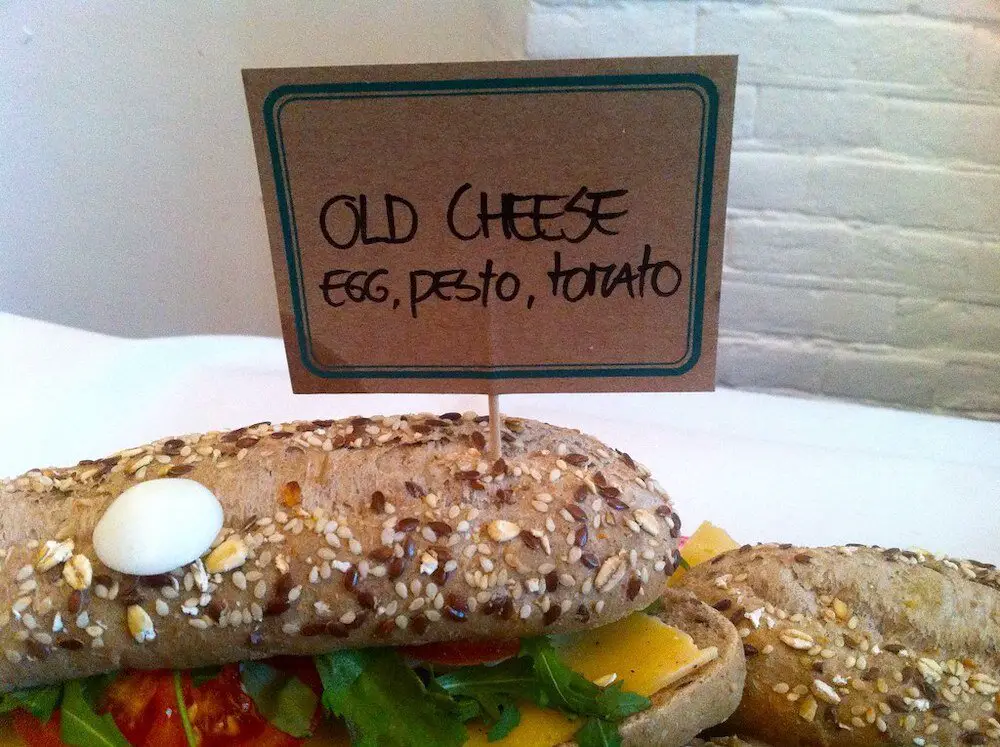 OLD CHEESE
EGG, pesto, tomato